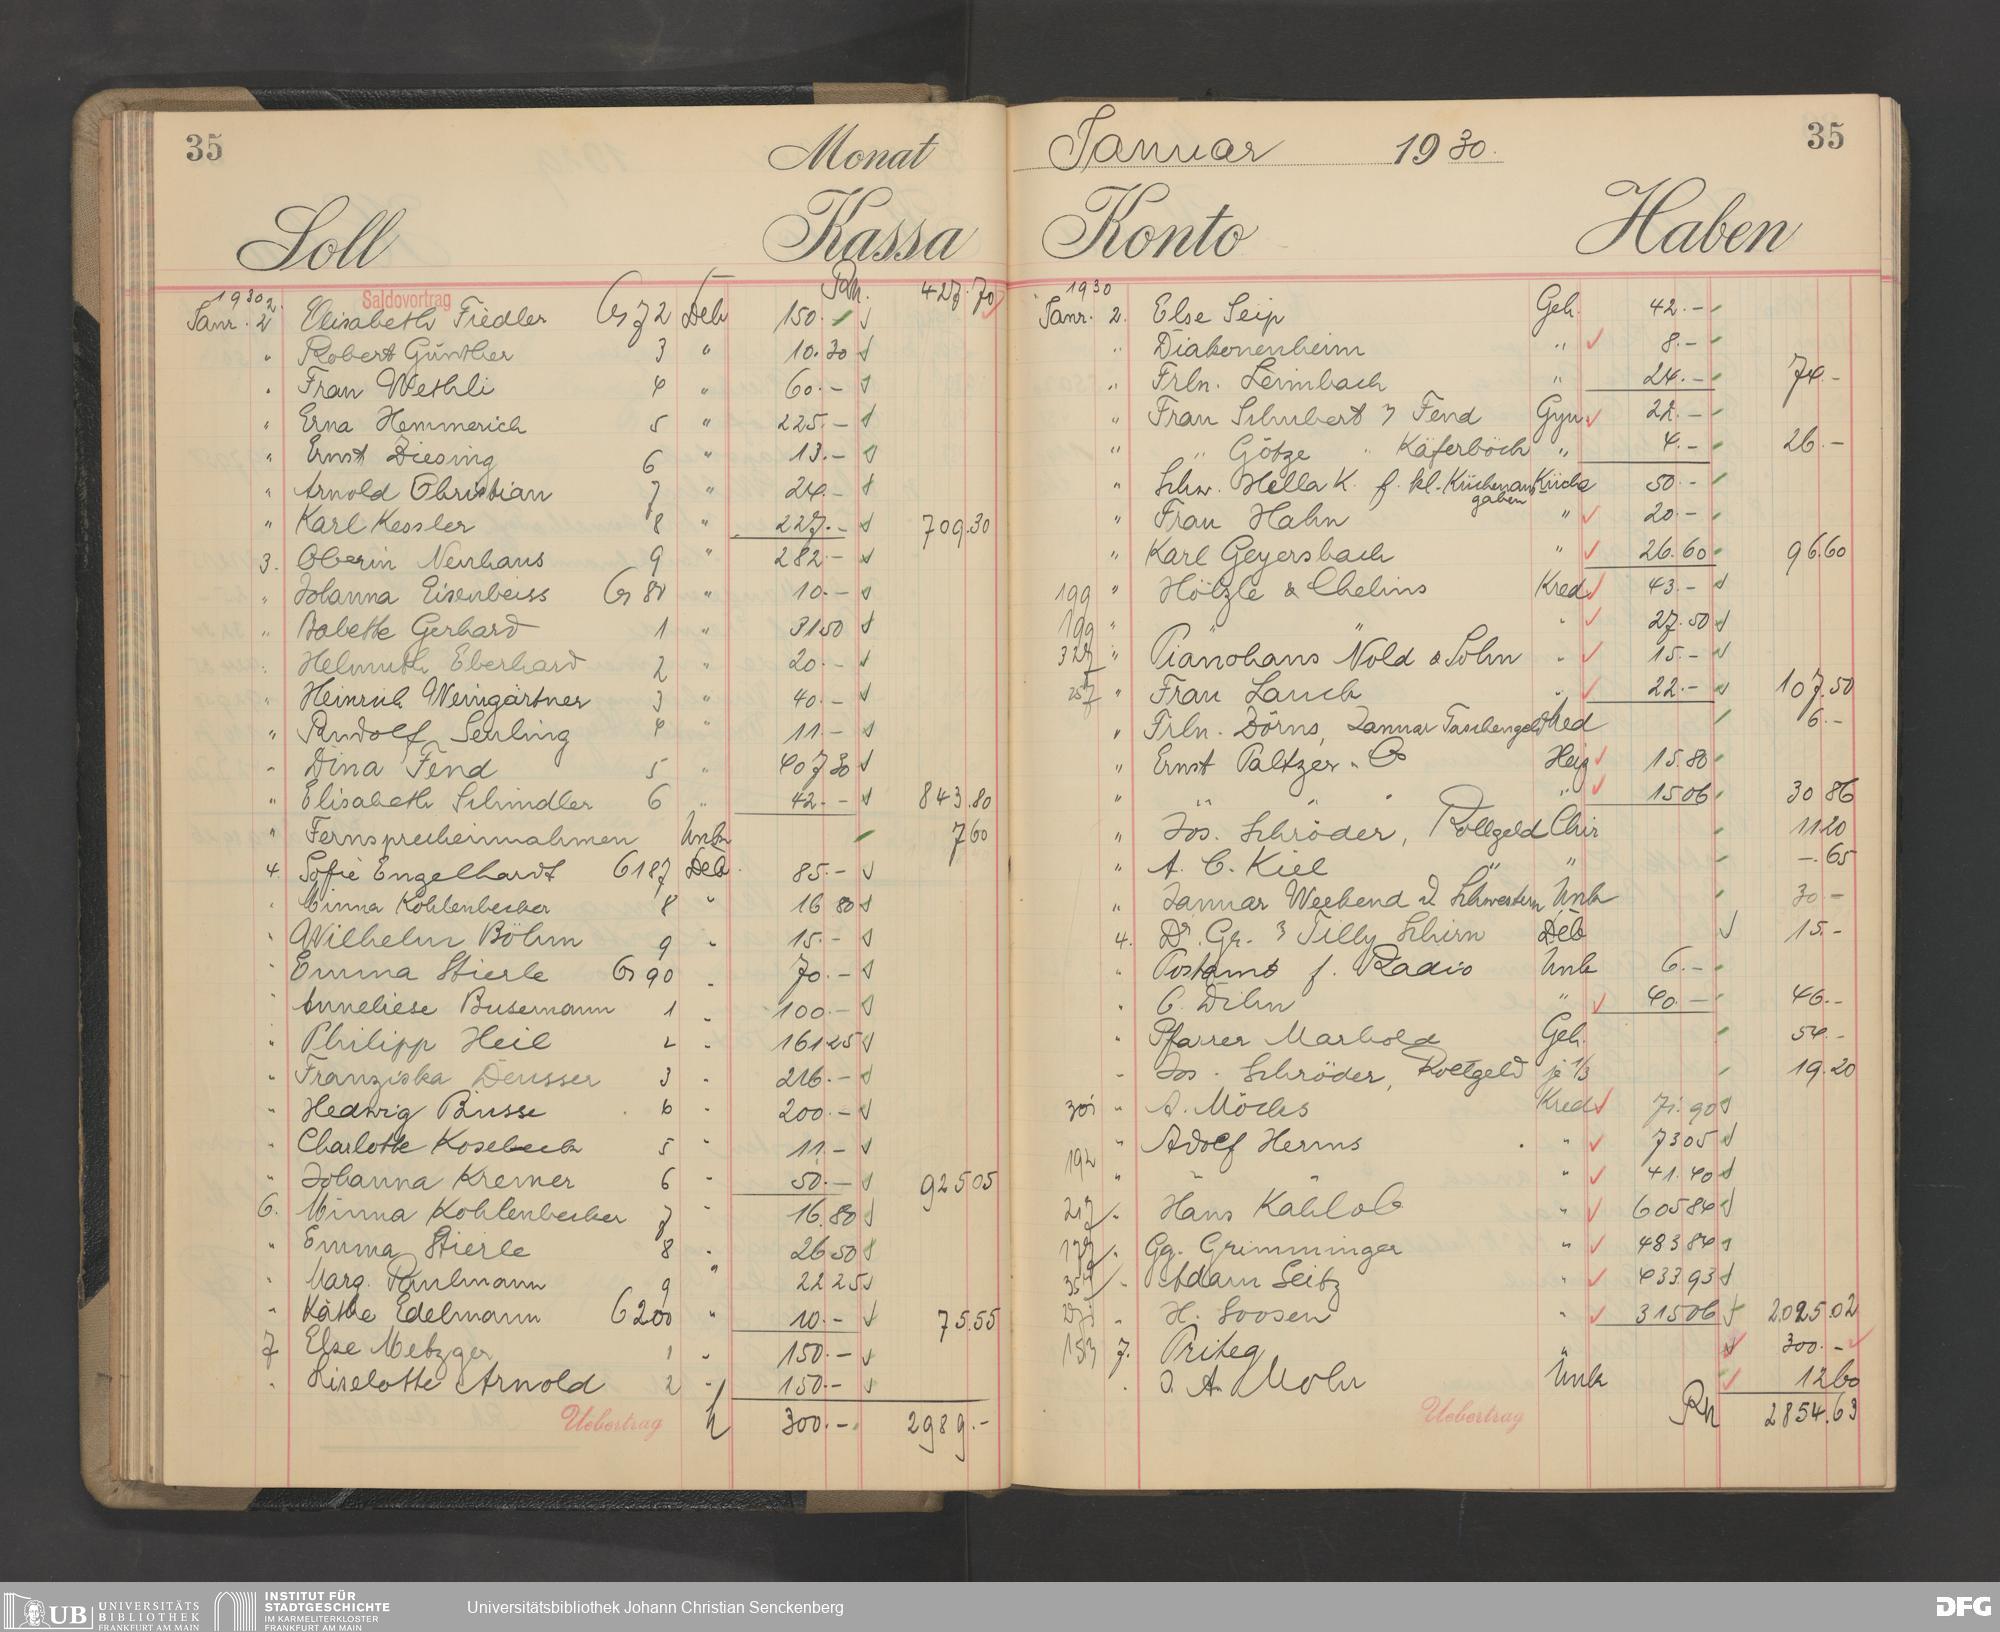 35
Monat
Soll
Kassa
Saldovortrag
Rm. 427.70
1930
Janr. 2 Elisabeth Fiedler 72 Deb 150.-
" Robert Günther 3 " 10.30
" Frau Wethli 4 " 60.-
" Erna Hemmerich 5 " 225.-
" Ernst Diesing 6 " 13.-
" Arnold Christian 7 " 24.-
" Karl Kessler 8 " 227.- 709.30
3. Oberin Neuhaus 9 " 282.-
" Johanna Eisenbeiss 80 " 10.-
" Babette Gerhard 1 " 31 50
" Helmuth Eberhard 2 " 20.-
" Heinrich Weingärtner 3 " 40.-
" Rudolf Seuling 4 " 11.-
" Dina Fend 5 " 407 30
" Elisabeth Schindler 6 " 42.- 843.80
" Fernsprecheinnahmen Unk 7 60
4. Sofie Engelhardt 187 Deb. 85.-
" Minna Kohlenbecker 8 " 16 80
" Wilhelm Böhm 9 " 15.-
" Emma Stierle 90 " 70.-
" Anneliese Busemann 1 " 100.-
" Philipp Heil 2 " 161 25
" Franziska Deusser 3 " 216.-
" Hedwig Busse " 200.-
" Charlotte Kosebeck 5 " 11.-
" Johanna Kremer 6 " 50.- 925 05
6. Minna Kohlenbecker 7 " 16.80
" Emma Stierle 8 " 26 50
" Marg. Paulmann 9 " 22 25
" Käthe Edelmann 200 " 10.- 75.55
7 Else Metzger 1 " 150.-
" Liselotte Arnold 2 " 150.-
Uebertrag 300.- 2989.-
Januar 1930.
35
Konto
Haben
1930
Janr. 2. Else Seip Geh. 42.-
" Diakonenheim " 8.-
" Frln. Leimbach " 24.- 74.-
" Frau Schubert & Fend Gyn. 22.-
" " Götze " Käferböck " 4.- 26.-
" Schw. Hella K. f. kl. Küchenausgaben Küche 50.-
" Frau Hahn " 20.-
" Karl Geyersbach " 26.60 96.60
199 " Hölzle & Chelius Kred 43.-
199 " " " " 27.50
327 " Pianohaus Nold & Sohn " 15.-
257 " Frau Lauck " 22.- 107.50
" Frln. Dörns, Januar Taschengeld 6.-
" Ernst Paltzer & Co Heiz 15.80
" " " " " 15 06 30 86
" Jos. Schröder, Rollgeld Chir 11 20
" A. C. Kiel " " -.65
" Januar Weekend d. Schwestern Unk 30.-
4. Dr. Gr. & Tilly Schirn Deb 15.-
" Postamt f. Radio Unk 6.-
" C. Dihn " 40.- 46.-
" Pfarrer Marhold Geh. 54.-
" Jos. Schröder, Rollgeld je 1/3 19.20
301 " A. Möcks Kred 71.90
" Adolf Herms " 73 05
192 " " 41.40
217 " Hans Kahlob " 605 84
177 " Gg. Grimminger " 483 84
354 " Adam Seitz " 433.93
" H. Goosen " 315 06 2025.02
153 7. Priteg 300.-
" J. A. Mohr Unk 12 60
Uebertrag Rm 2854.63
UB UNIVERSITÄTS
BIBLIOTHEK
FRANKFURT AM MAIN
INSTITUT FÜR
STADTGESCHICHTE
IM KARMELITERKLOSTER
FRANKFURT AM MAIN
Universitätsbibliothek Johann Christian Senckenberg
DFG